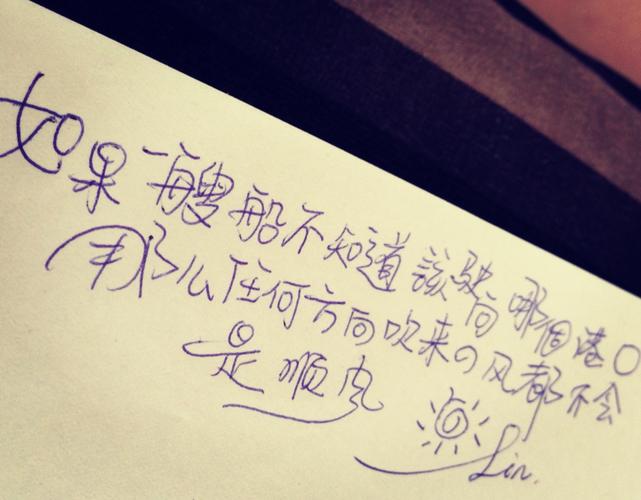 如果一艘船不知道該駛向哪個港口
那么任何方向吹来の风都不会
是顺风
Lin.